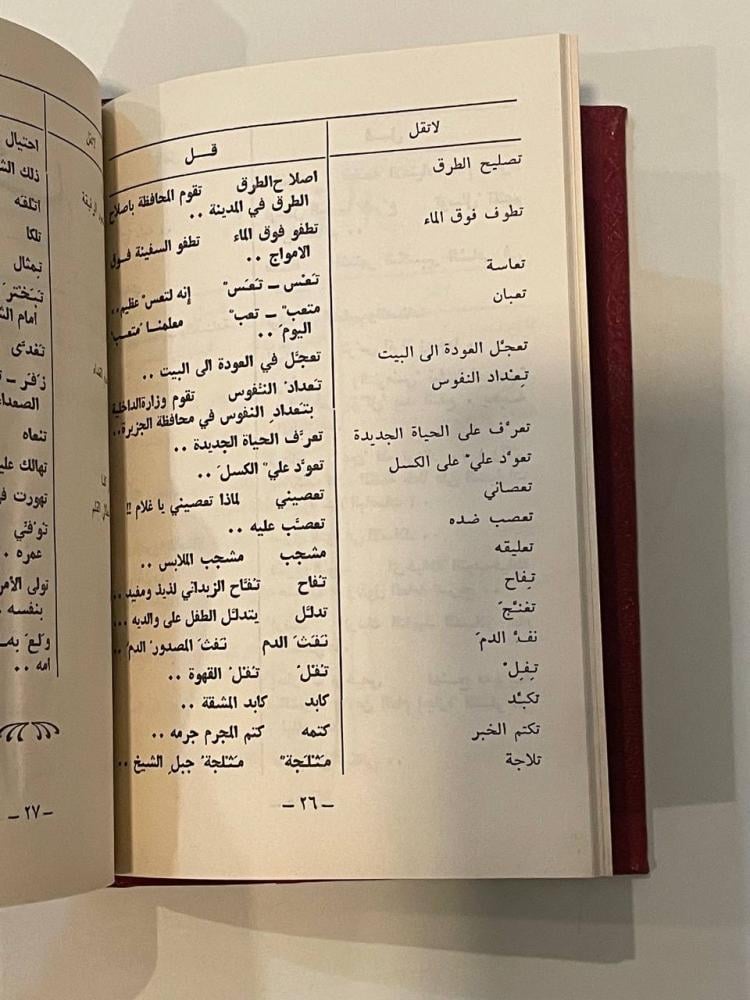 لاتقل
قــل
تصليح الطرق
اصلاح الطرق تقوم المحافظة باصلاح
الطرق في المدينة ..
تطوف فوق الماء
تطفو فوق الماء تطفو السفينة فـوق
الامواج ..
تعاسة
تَعْس ــ تَعَسْ إنه لتعسْ عظيم ..
تعبان
متعبْ ــ تعبْ معلمنـا مُتعبْ
اليومَ ..
تعجّل العودة الى البيت
تعجّل في العودة الى البيت ..
تِعْداد النفوس
تَعداد النّفوس تقوم وزارة الداخلية
بتَعدادِ النفوس في محافظة الجزيرة ..
تعرّف على الحياة الجديدة
تعرّف الحياة الجديدة ..
تعوّد عليّ على الكسل
تعوّد عليّ الكسلَ ..
تعصاني
تعصيني لماذا تعصيني يا غلام !!
تعصب ضده
تعصّب عليه ..
تعليقه
مشجب مشجب الملابس ..
تِفاح
تُفاح تُفّاح الزبداني لذيذ ومفيد ..
تفنّجَ
تدلّل يتدلّل الطفل على والديه ...
نفّ الدمَ
تفَثَ الدم تفثَ المصدورُ الدمَ ..
تِفِلْ
تُفْلْ تُفْلُ القهوة ..
تكبّد
كابد كابد المشقة ..
تكتم الخبر
كتمه كتم المجرم جرمه ..
تلاجة
مَثْلَجةْ مَثْلَجةُ جبلِ الشيخ ..
ــ ٢٦ ــ
احتيال
ذلك
اتلفه
تلكا
تِمثال
تَبَخْترَ
أمام
تغدّى
زَفَرَ ــ
الصعداء
تنعاه
تهالك
تهورت
توَفّي
عمره .
تولى الأمر
بنفسه .
وَلِعَ
امه ..
ــ ٢٧ ــ